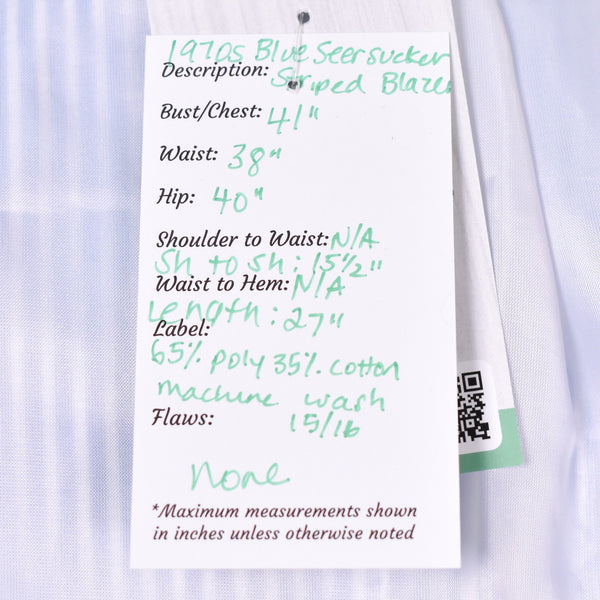 1970s Blue Seersucker
Description: Striped Blazer
Bust/Chest: 41"
Waist: 38"
Hip: 40"
Shoulder to Waist: N/A
Sh to sh: 15½"
Waist to Hem: N/A
Length: 27"
Label:
65% poly 35% cotton
machine wash
Flaws: 15/16
None
*Maximum measurements shown
in inches unless otherwise noted